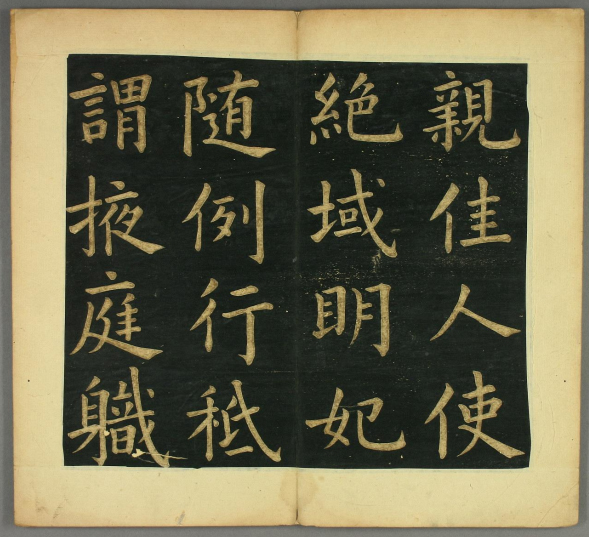 親佳人使
絶域眀妃
随例行秪
謂掖庭軄